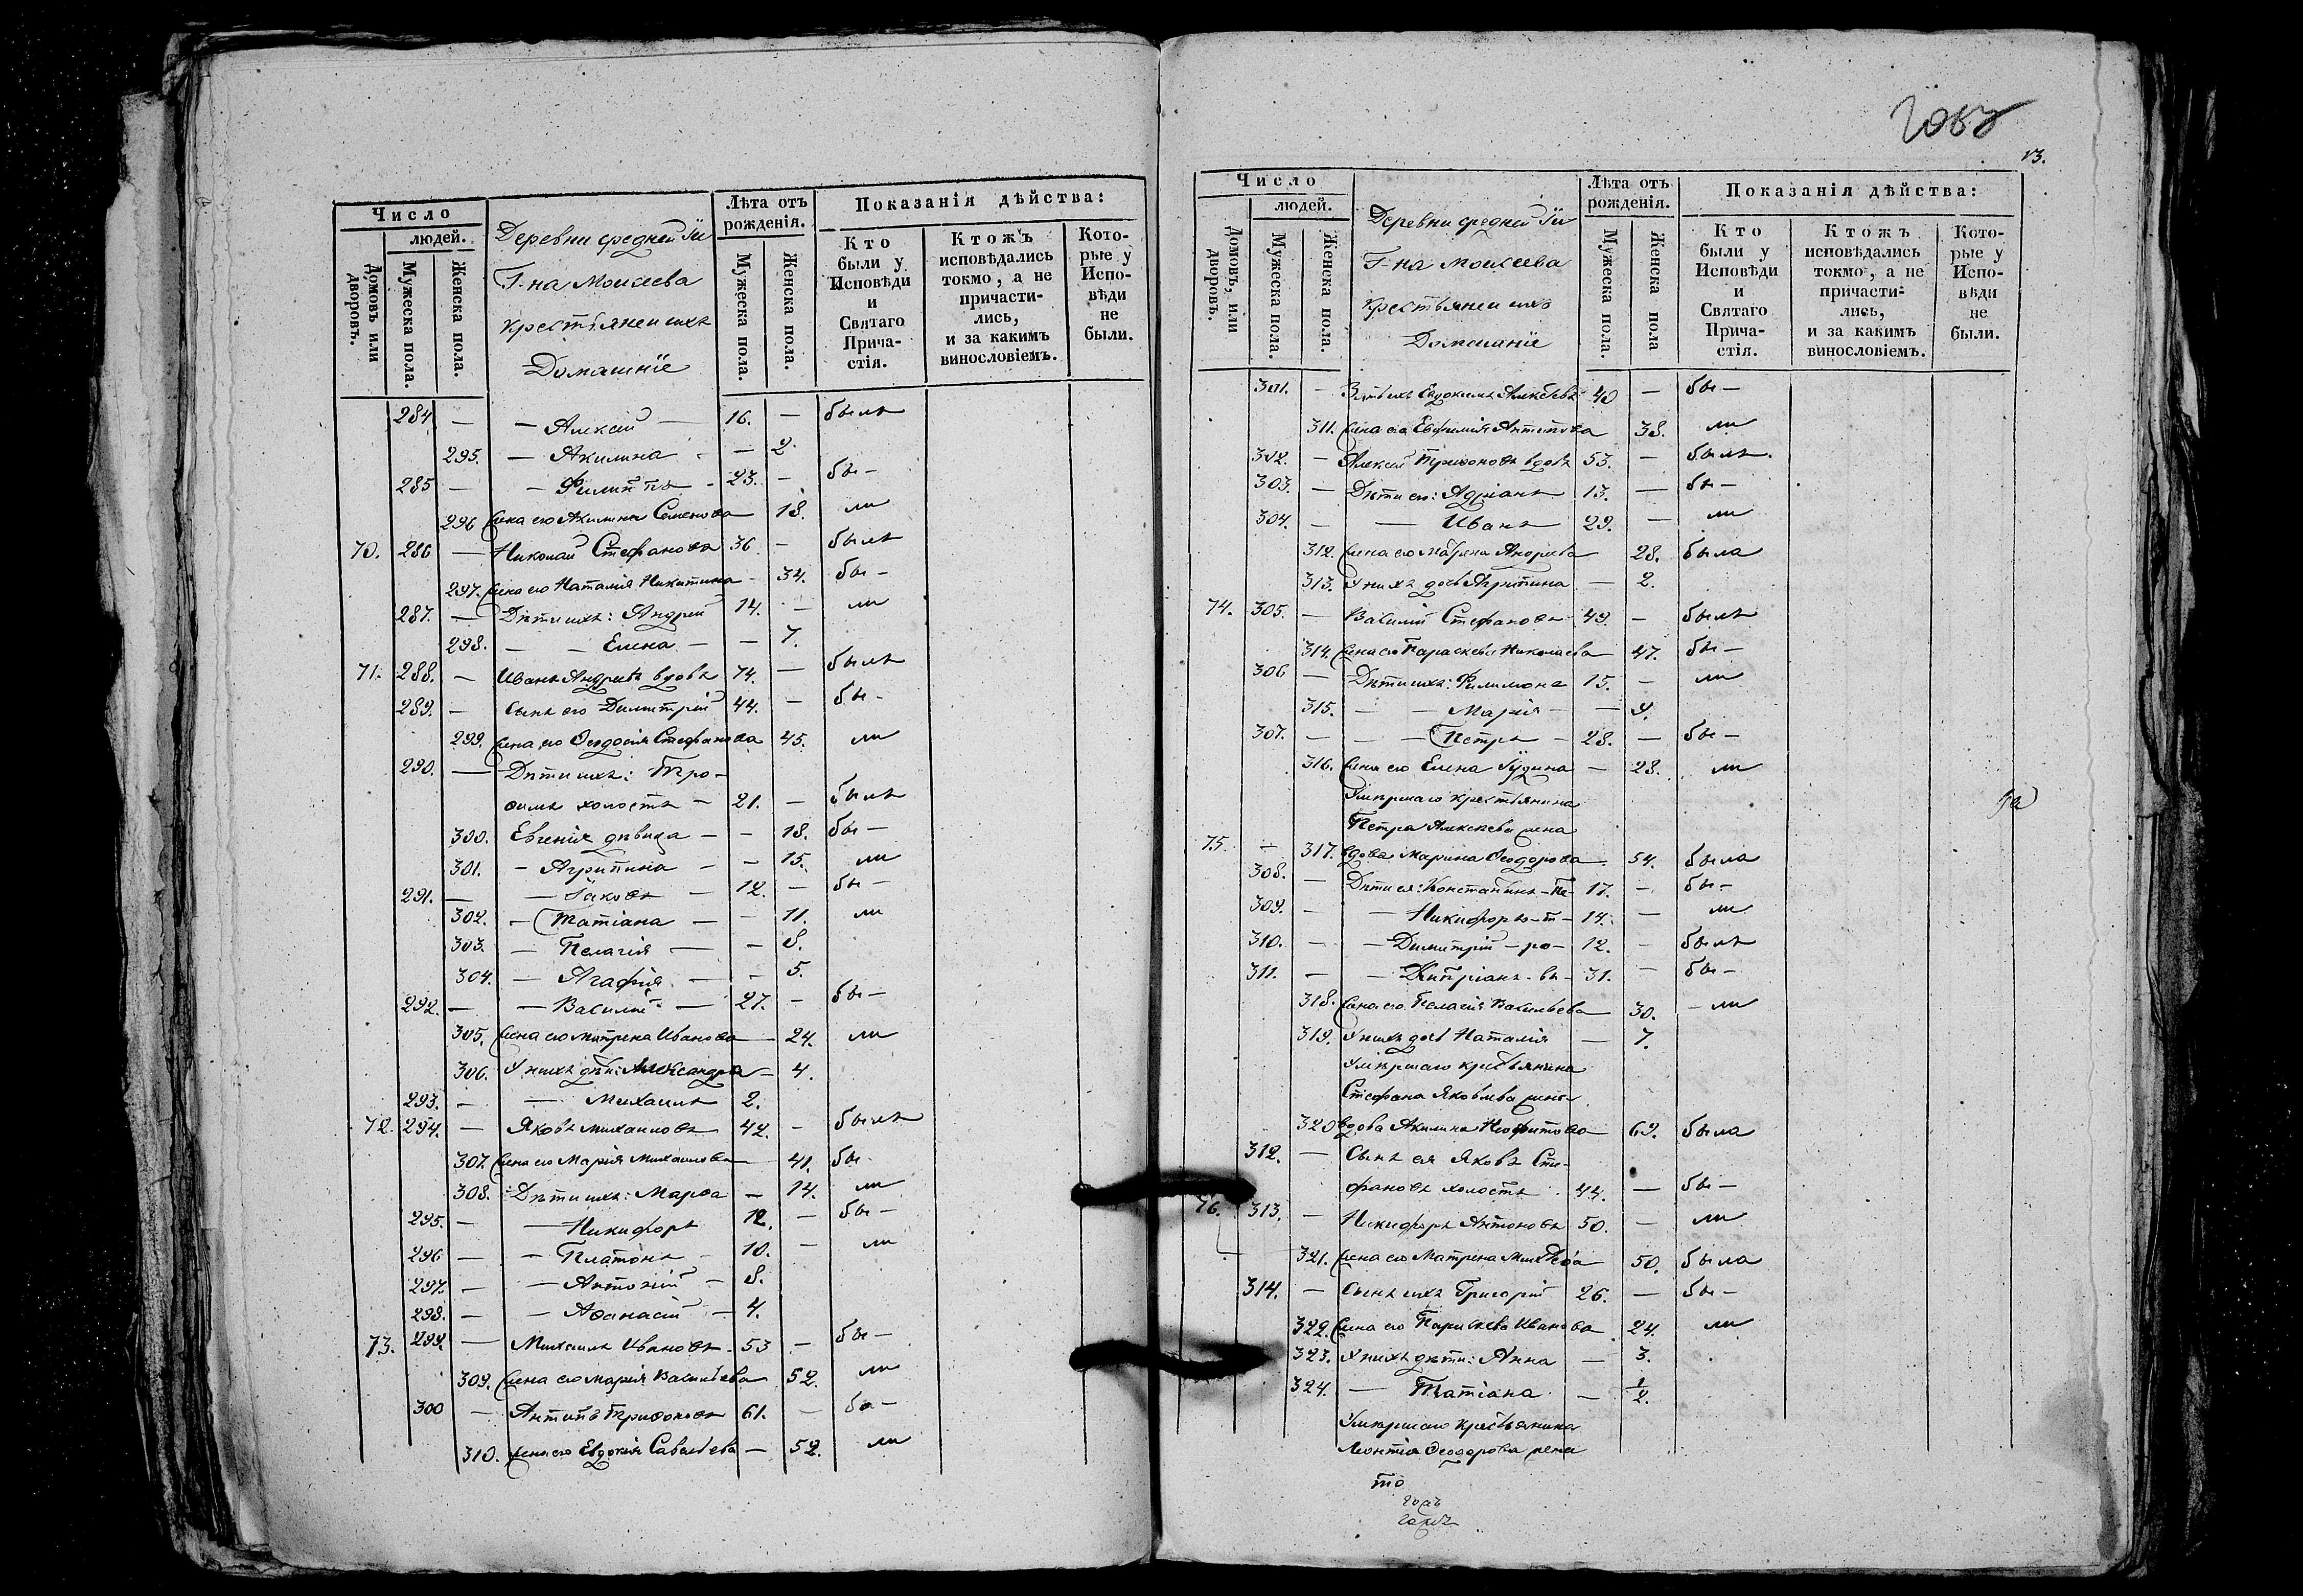 Число
людей.
Домовъ или дворовъ.
Мужеска пола.
Женска пола.
Деревни средней Ги
Г-на Моисеева
крестьяне и ихъ
Домашніе
Лѣта отъ рожденія.
Мужеска пола.
Женска пола.
Показанія дѣйства:
Кто были у Исповѣди и Святаго Причастія.
Ктожъ исповѣдались токмо, а не причастились, и за какимъ винословіемъ.
Которые у Исповѣди не были.
284 — — Алексій — 16. — былъ
295. — Акилина — — 2.
285 — — Филиппъ — 23. — бы —
296 Жена его Акилина Семенова 18. ли
70. 286 — Николай Стефановъ 36 — былъ
297. Жена его Наталія Никитина — 34. бы —
287. — Дѣти ихъ: Андрей 14. — ли
298. — — Елена — — 7.
71. 288. — Иванъ Андреевъ вдовъ 74. — былъ
289. — Сынъ его Димитрій 44. — бы —
299. Жена его Ѳеодосія Стефанова 45. ли
290. — Дѣти ихъ: Тро-
ѳимъ холостъ — 21. — былъ
300. Евгенія дѣвица — — 18. бы —
301. — Агрипина — — 15. ли
291. — — Іаковъ — 12. — бы —
302. — Татіана — — 11. ли
303. — Пелагія — — 8.
304. — Агафія — — 5.
292. — — Василій — 27. — бы —
305. Жена его Матрена Иванова — 24. ли
306. У нихъ дѣти: Александра — 4.
293. — — Михаилъ 2.
72. 294. — Яковъ Михаиловъ 42. — былъ
307. Жена его Марія Михаилова — 41. бы
308. Дѣти ихъ: Марѳа — 14. ли
295. — — Никифоръ 12. — бы —
296 — — Платонъ — 10. — ли
297. — — Антоній — 8.
298. — — Аѳанасій — 4.
73. 299. — Михаилъ Ивановъ — 53 — бы —
309. Жена его Марія Васильева 52. ли
300 — Антипъ Триѳоновъ 61. — бы —
310. Жена его Евдокія Савельева — 52. ли
13.
Число
людей.
Домовъ, или дворовъ.
Мужеска пола.
Женска пола.
Деревни средней Ги
Г-на Моисеева
крестьяне и ихъ
Домашніе
Лѣта отъ рожденія.
Мужеска пола.
Женска пола
Показанія дѣйства:
Кто были у Исповѣди и Святаго Причастія.
Ктожъ исповѣдались токмо, а не причастились, и за какимъ винословіемъ.
Которые у Исповѣди не были.
301. — Зять ихъ Евдокимъ Алексѣевъ 40 — бы —
311. Жена его Евфимія Антипова 38. ли
302. — Алексій Триѳоновъ вдовъ 53. — былъ
303. — Дѣти его: Адріанъ 13. — бы —
304. — — Иванъ 29. — ли
312. Жена его Матрена Андреева 28. была
313. У нихъ дочь Агрипина — 2.
74. 305. — Василій Стефановъ 49. — былъ
314. Жена его Параскева Николаева 47. бы —
306 — Дѣти ихъ: Филимонъ 15. — ли
315. — — Марія — — 9.
307. — — Петръ — 28. — бы —
316. Жена его Елена Іудина — 28. ли
Умершаго крестьянина
Петра Алексѣева жена
75. — 317. вдова Марина Ѳеодорова — 54. была
308. — Дѣти ея: Констанинъ — Пе- 17. — бы —
309. — — Никифоръ — т — 14. — ли
310. — — Димитрій — ро — 12. — былъ
311. — — Кипріанъ — вы — 31. — бы —
318. Жена его Пелагія Васильева 30. — ли
319. У нихъ дочь Наталія — 7.
Умершаго крестьянина
Стефана Яковлева жена
320 вдова Акилина Неофитова 69. была
312. — Сынъ ея Яковъ Сте-
фановъ холостъ 44. — бы —
76. 313. — Никифоръ Антоновъ 50. — ли
321. Жена его Матрена 50. была
314. — Сынъ ихъ Григорій 26. — бы —
322. Жена его Параскева Иванова 24. ли
323. У нихъ дѣти: Анна — 3.
324. — Татіана — ½.
Умершаго крестьянина
Леонтія Ѳеодорова жена